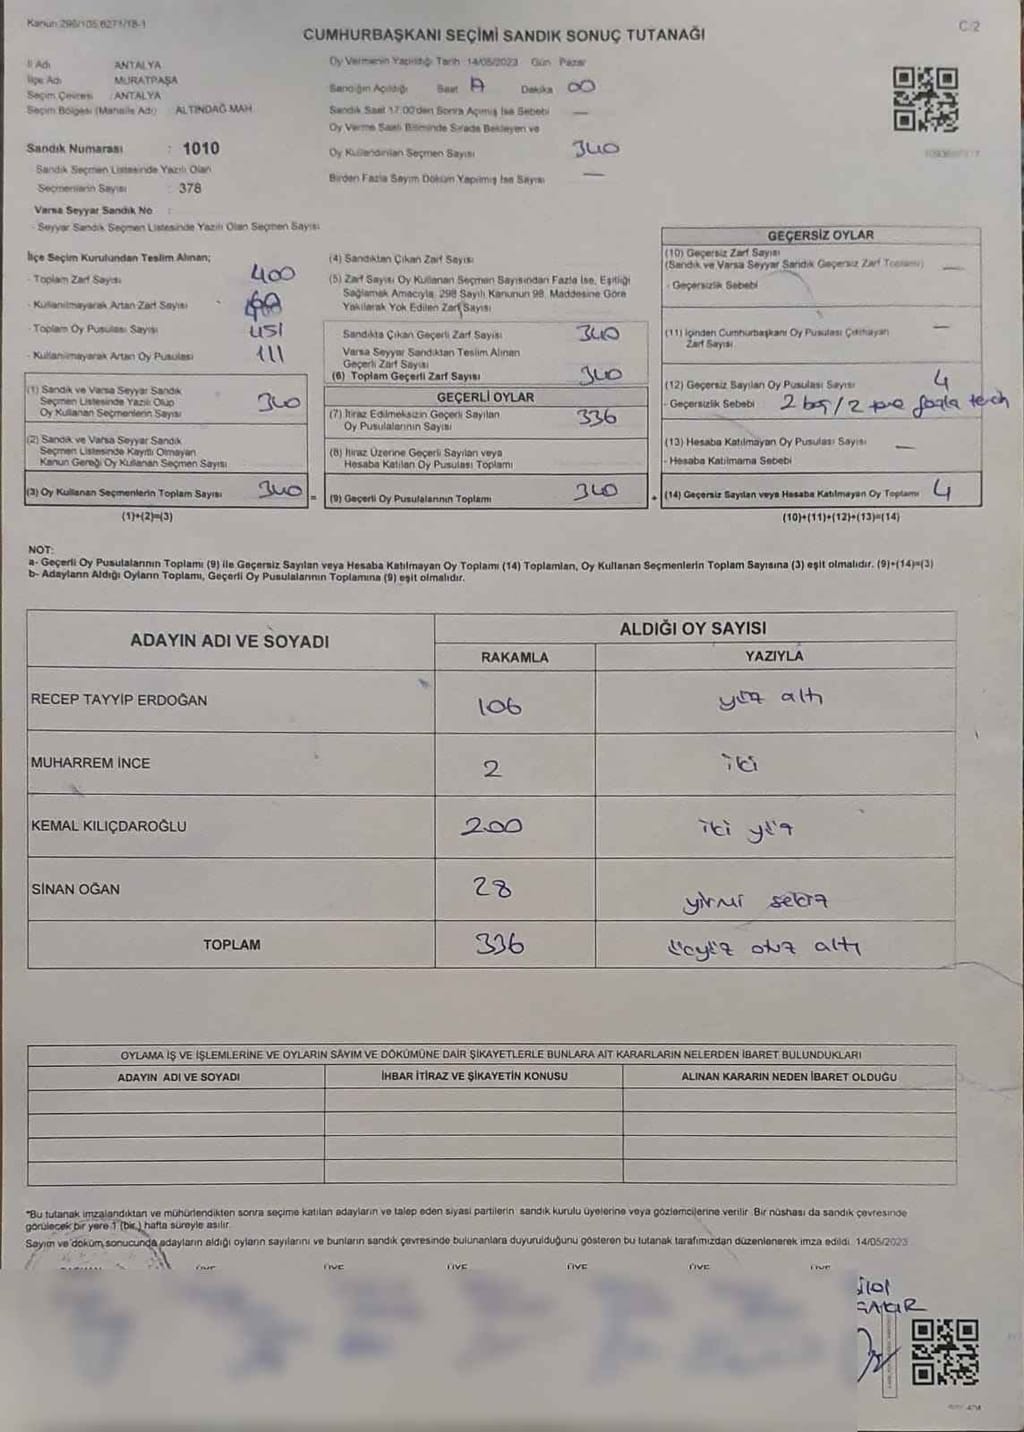 Kanun 298/105 6271/18-1
C/2
CUMHURBAŞKANI SEÇİMİ SANDIK SONUÇ TUTANAĞI
İl Adı ANTALYA
İlçe Adı MURATPAŞA
Seçim Çevresi : ANTALYA
Seçim Bölgesi (Mahalle Adı) ALTINDAĞ MAH
Sandık Numarası : 1010
Sandık Seçmen Listesinde Yazılı Olan
Seçmenlerin Sayısı : 378
Varsa Seyyar Sandık No :
- Seyyar Sandık Seçmen Listesinde Yazılı Olan Seçmen Sayısı
Oy Vermenin Yapıldığı Tarih 14/05/2023 Gün Pazar
Sandığın Açıldığı Saat Dakika 00
Sandık Saat 17:00'den Sonra Açılmış İse Sebebi —
Oy Verme Saati Bitiminde Sırada Bekleyen ve
Oy Kullandırılan Seçmen Sayısı 340
Birden Fazla Sayım Döküm Yapılmış İse Sayısı —
İlçe Seçim Kurulundan Teslim Alınan;
- Toplam Zarf Sayısı 400
- Kullanılmayarak Artan Zarf Sayısı
- Toplam Oy Pusulası Sayısı 451
- Kullanılmayarak Artan Oy Pusulası 111
(1) Sandık ve Varsa Seyyar Sandık
Seçmen Listesinde Yazılı Olup
Oy Kullanan Seçmenlerin Sayısı 340
(2) Sandık ve Varsa Seyyar Sandık
Seçmen Listesinde Kayıtlı Olmayan
Kanun Gereği Oy Kullanan Seçmen Sayısı
(3) Oy Kullanan Seçmenlerin Toplam Sayısı 340 =
(1)+(2)=(3)
(4) Sandıktan Çıkan Zarf Sayısı
(5) Zarf Sayısı Oy Kullanan Seçmen Sayısından Fazla İse, Eşitliği
Sağlamak Amacıyla, 298 Sayılı Kanunun 98. Maddesine Göre
Yakılarak Yok Edilen Zarf Sayısı
Sandıkta Çıkan Geçerli Zarf Sayısı 340
Varsa Seyyar Sandıktan Teslim Alınan
Geçerli Zarf Sayısı
(6) Toplam Geçerli Zarf Sayısı 340
GEÇERLİ OYLAR
(7) İtiraz Edilmeksizin Geçerli Sayılan
Oy Pusulalarının Sayısı 336
(8) İtiraz Üzerine Geçerli Sayılan veya
Hesaba Katılan Oy Pusulası Toplamı
(9) Geçerli Oy Pusulalarının Toplamı 340 +
GEÇERSİZ OYLAR
(10) Geçersiz Zarf Sayısı
(Sandık ve Varsa Seyyar Sandık Geçersiz Zarf Toplamı) —
- Geçersizlik Sebebi
(11) İçinden Cumhurbaşkanı Oy Pusulası Çıkmayan —
Zarf Sayısı
(12) Geçersiz Sayılan Oy Pusulası Sayısı 4
- Geçersizlik Sebebi 2 boş / 2 tane fazla tercih
(13) Hesaba Katılmayan Oy Pusulası Sayısı —
- Hesaba Katılmama Sebebi
(14) Geçersiz Sayılan veya Hesaba Katılmayan Oy Toplamı 4
(10)+(11)+(12)+(13)=(14)
NOT:
a- Geçerli Oy Pusulalarının Toplamı (9) ile Geçersiz Sayılan veya Hesaba Katılmayan Oy Toplamı (14) Toplamları, Oy Kullanan Seçmenlerin Toplam Sayısına (3) eşit olmalıdır. (9)+(14)=(3)
b- Adayların Aldığı Oyların Toplamı, Geçerli Oy Pusulalarının Toplamına (9) eşit olmalıdır.
ADAYIN ADI VE SOYADI
ALDIĞI OY SAYISI
RAKAMLA YAZIYLA
RECEP TAYYİP ERDOĞAN 106 yüz altı
MUHARREM İNCE 2 iki
KEMAL KILIÇDAROĞLU 200 iki yüz
SİNAN OĞAN 28 yirmi sekiz
TOPLAM 336 üçyüz otuz altı
OYLAMA İŞ VE İŞLEMLERİNE VE OYLARIN SAYIM VE DÖKÜMÜNE DAİR ŞİKAYETLERLE BUNLARA AİT KARARLARIN NELERDEN İBARET BULUNDUKLARI
ADAYIN ADI VE SOYADI İHBAR İTİRAZ VE ŞİKAYETİN KONUSU ALINAN KARARIN NEDEN İBARET OLDUĞU
"Bu tutanak imzalandıktan ve mühürlendikten sonra seçime katılan adayların ve talep eden siyasi partilerin sandık kurulu üyelerine veya gözlemcilerine verilir. Bir nüshası da sandık çevresinde
görülecek bir yere 1 (bir) hafta süreyle asılır.
Sayım ve döküm sonucunda adayların aldığı oyların sayılarını ve bunların sandık çevresinde bulunanlara duyurulduğunu gösteren bu tutanak tarafımızdan düzenlenerek imza edildi. 14/05/2023
ÜYE ÜYE ÜYE ÜYE ÜYE ÜYE